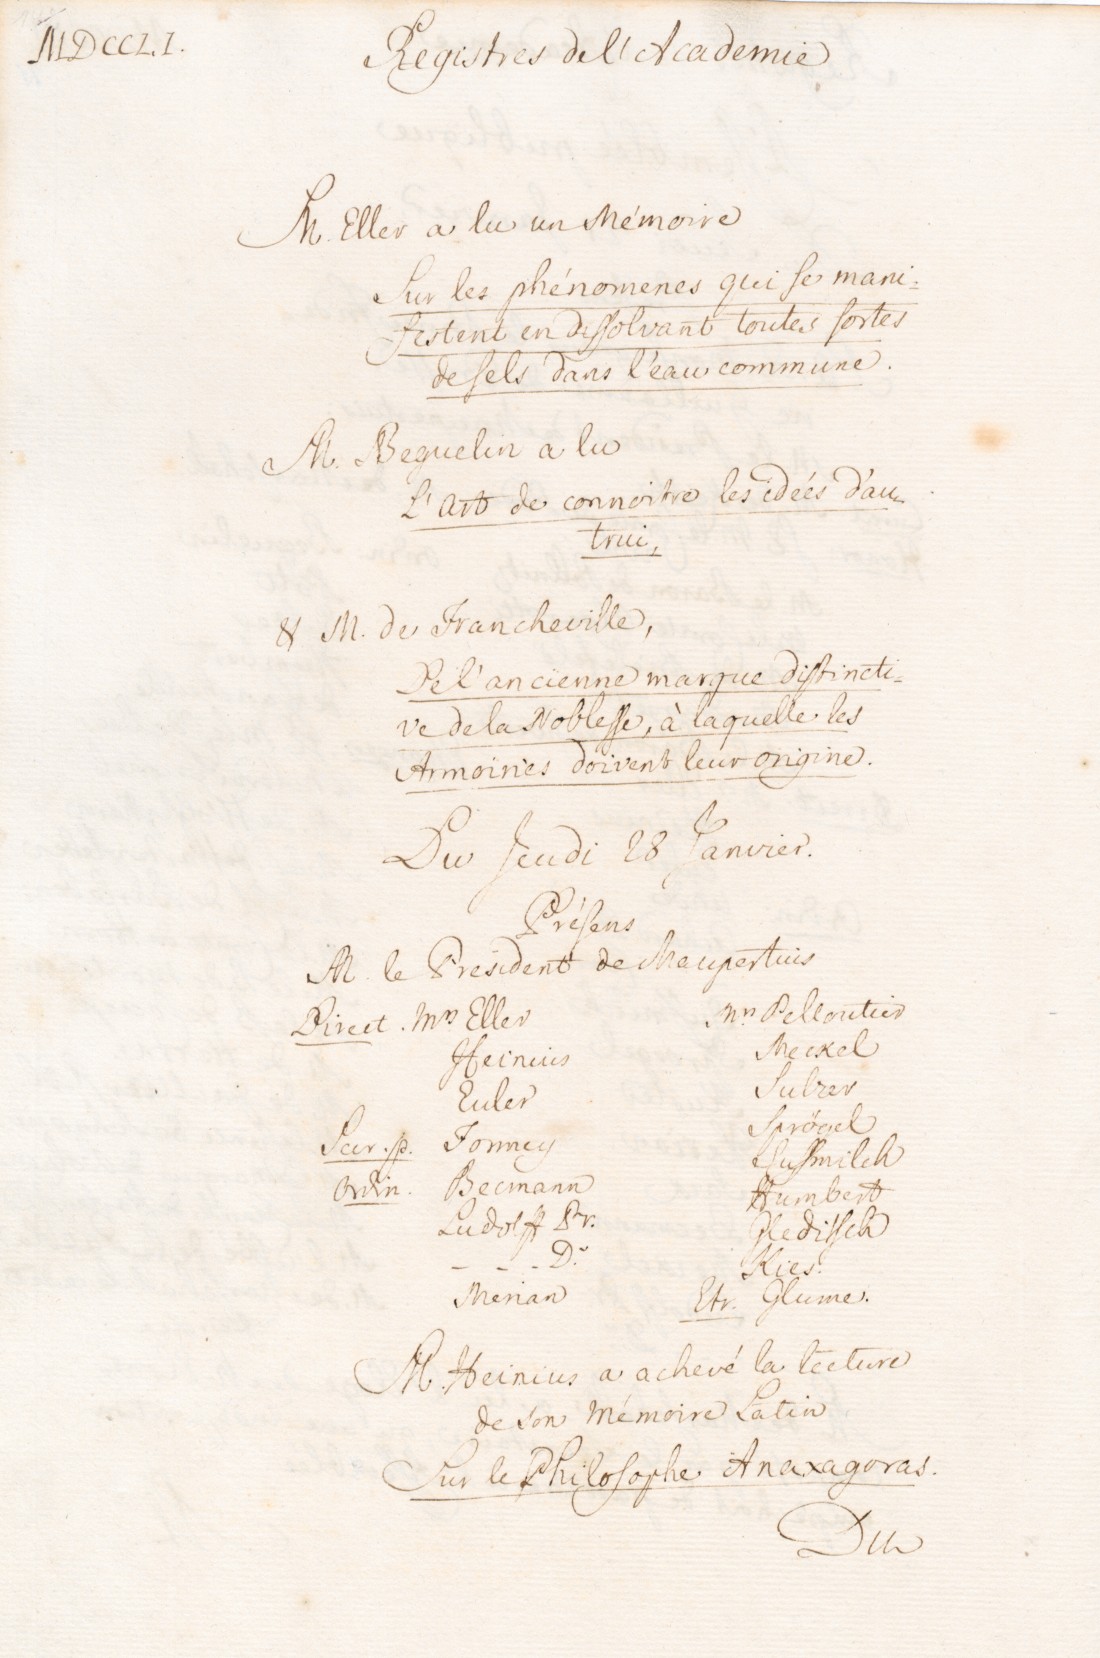 MDCCLI.
Registres de l'Academie
M. Eller a lu un Mémoire
Sur les phénomenes qui se mani=
festent en dissolvant toutes sortes
de sels dans l'eau commune.
M. Beguelin a lu
L'art de connoitre les idées d'au
trui,
& M. de Francheville,
De l'ancienne marque distincti=
ve de la Noblesse, à laquelle les
Armoiries doivent leur origine.
Du Jeudi 28 Janvier.
Présens
M. le President de Maupertuis
Direct. Mrs Eller
Heinius
Euler
Secr. p. Formey
Ordin. Becmann
Ludolff Pr.
- - - Dr
Merian
Mrs Pelloutier
Meckel
Sulzer
Sprögel
Sussmilch
Humbert
Gleditsch
Kies.
Etr. Glume.
M. Heinius a achevé la lecture
de son Mémoire Latin
Sur le Philosophe Anaxagoras.
Du